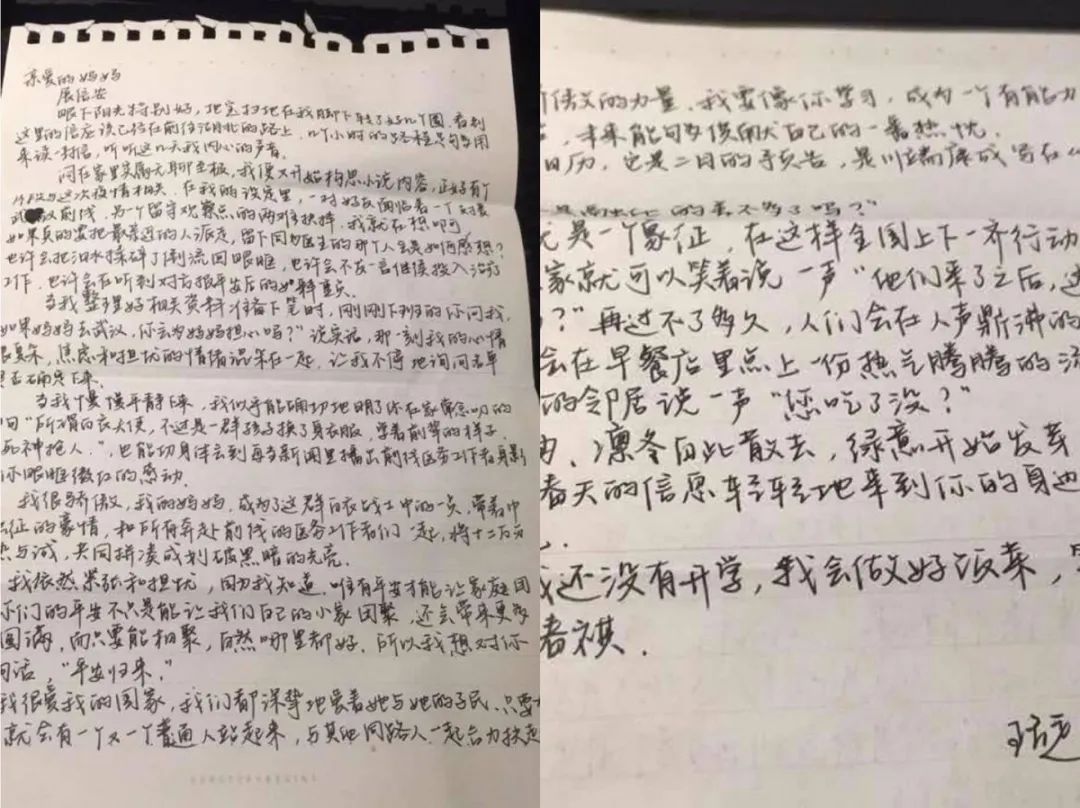 亲爱的妈妈
展信安
眼下阳光特别好，地宝扫地在我脚下转了好几个圈，看到
这里的信应该已经在前往湖北的路上，几个小时的路程足够用
来读一封信，听听这几天我内心的声音。
闷在家里实属无聊至极，我便又开始构思小说内容，正好有个
与这次疫情相关，在我的设定里，一对好友面临着一个
前线，另一个留守观察点的两难抉择，我就在想啊
如果真的要把最亲近的人派走，留下同为医生的那个人会是如何感想？
也许会把泪水揉碎了倒流回眼眶，也许会不发一言继续投入治疗
工作，也许会在听到对方报平安后的如释重负。
当我整理好相关资料准备下笔时，刚刚下班的你问我，
如果妈妈去武汉，你会为妈妈担心吗？”说实话，那一刻我的心情
很复杂，焦虑和担忧的情绪混杂在一起，让我不停地询问名单
是否确定下来。
当我慢慢平静下来，我似乎能确切地明了你在家常念叨的
“所谓白衣天使，不过是一群孩子换了身衣服，学着前辈的样子，
死神抢人。”，也能切身体会到每当新闻里播出前线医务工作者身影
你眼眶微红的感动。
我很骄傲，我的妈妈，成为了这群白衣战士中的一员，带着出
征的豪情，和所有奔赴前线的医务工作者们一起，将十二万分
热与诚，共同拼凑成划破黑暗的光亮。
我依然紧张和担忧，因为我知道，唯有平安才能让家庭团
你们的平安不只是能让我们自己的小家团聚，还会带来更多
圆满，而只要能相聚，自然哪里都好。所以我想对你
句话，“平安归来。”
我很爱我的国家，我们都深挚地爱着她与她的子民，只要
就会有一个又一个普通人站起来，与其他同路人一起合力扶起
的力量，我要像你学习，成为一个有能力
，未来能够贡献自己的一番热忱。
日历，它是二月的手预告，是川端康成写在
的春天了吗？”
是一个象征，在这样全国上下一齐行动
家就可以笑着说一声“他们来了之后，这
？”再过不了多久，人们会在人声鼎沸的
会在早餐店里点上一份热气腾腾的
的邻居说一声“您吃了没？”
凛冬自此散去，绿意开始发芽
春天的信愿轻轻地来到你的身边
我还没有开学，我会做好饭菜，
春祺．